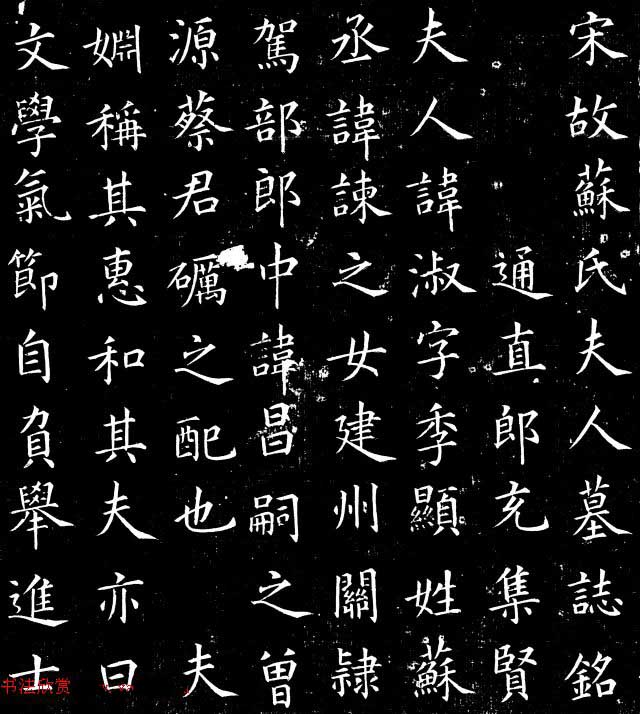 宋故蘇氏夫人墓誌銘
通直郎充集賢
夫人諱淑字季顯姓蘇
丞諱諫之女建州關隸
駕部郎中諱昌嗣之曾
源蔡君礪之配也　夫
婣稱其惠和其夫亦曰
文學氣節自負舉進士
书法欣赏